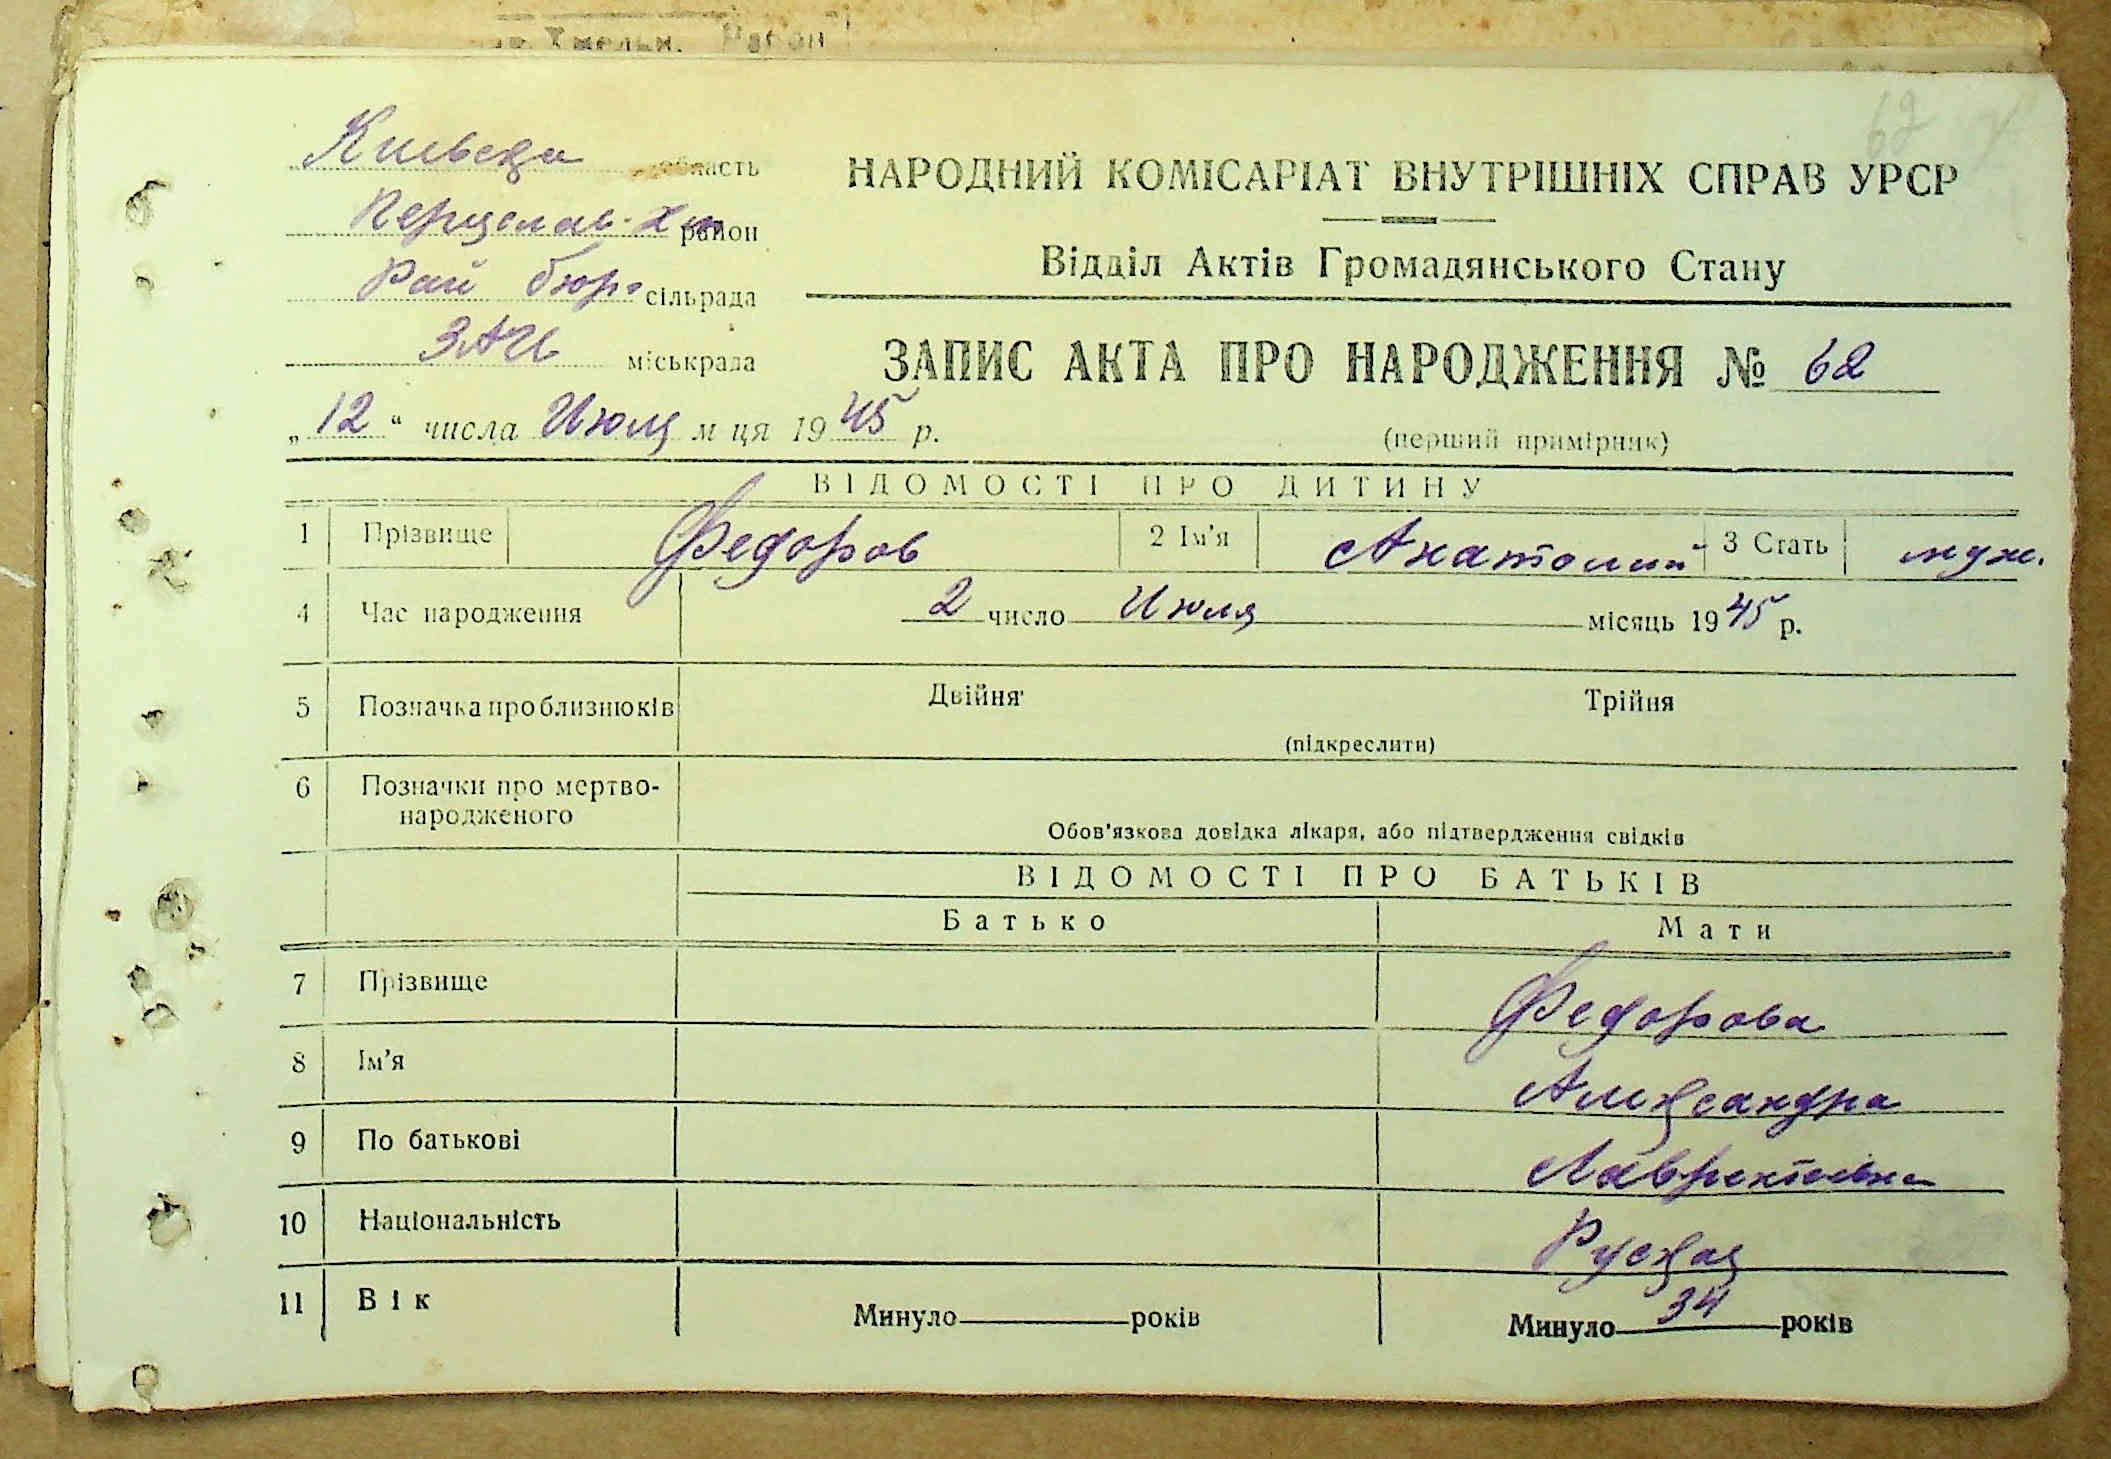 Хмельн. Район
62
Киевская область
НАРОДНИЙ КОМІСАРІАТ ВНУТРІШНІХ СПРАВ УРСР
Переяслав-Хм район
Відділ Актів Громадянського Стану
Рай бюро сільрада
ЗАГС міськрада
ЗАПИС АКТА ПРО НАРОДЖЕННЯ № 62
„12“ числа Июля м ця 1945 р.
(перший примірник)
ВІДОМОСТІ ПРО ДИТИНУ
1 Прізвище Федоров 2 Ім'я Анатолий 3 Стать муж.
4 Час народження 2 число Июля місяць 1945 р.
5 Позначка про близнюків Двійня Трійня
(підкреслити)
6 Позначки про мертво-
народженого
Обов'язкова довідка лікаря, або підтвердження свідків
ВІДОМОСТІ ПРО БАТЬКІВ
Батько Мати
7 Прізвище Федорова
8 Ім'я Александра
9 По батькові Лаврентевна
10 Національність Руская
11 Вік Минуло років Минуло 34 років